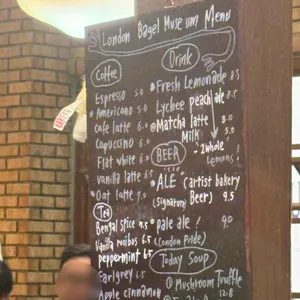 London Bagel Museum Menu
Coffee
Espresso 5.0
Americano 5.0
Cafe latte 6.0
Capuccino 6.0
Flat white 6.0
Vanilla latte 6.5
Oat latte
Tea
Bengal spice 6.5
Vanilla rooibos 6.5
peppermint 6.5
Earlgrey 6.5
Apple cinnamon
Drink
Fresh Lemonade 8.5
Lychee peach ale 7.5
Matcha latte
Milk 5.0
2 whole
Lemons!
BEER
ALE (artist bakery
(signature Beer) 9.5
pale ale! 9.0
(London Pride)
Today Soup
Mushroom Truffle
12.8